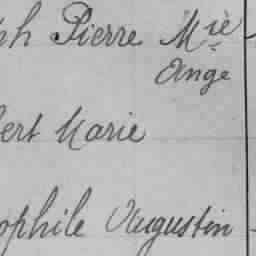 ph Pierre Mie
Ange
bert Marie
ophile Augustin